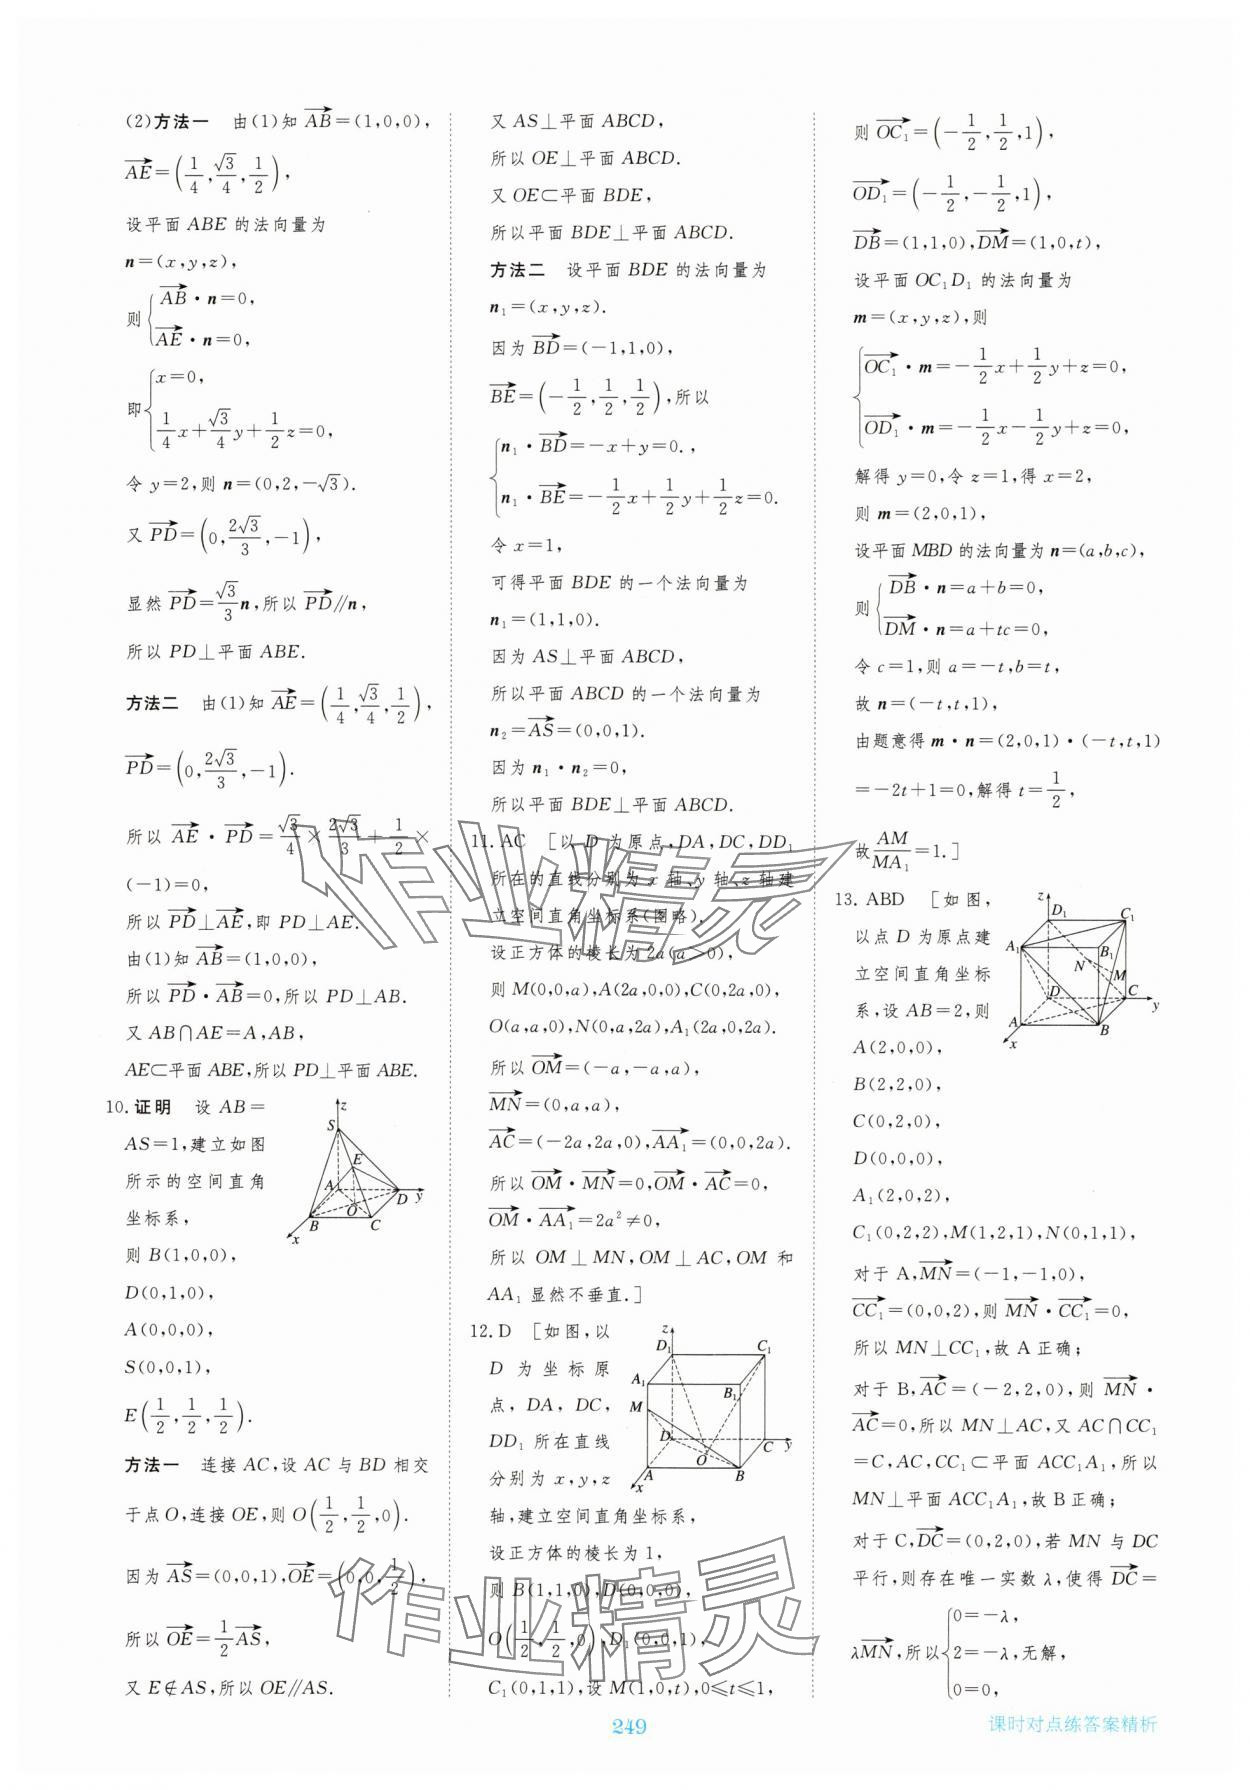 (2)方法一　由(1)知 $\overrightarrow{AB}$=(1,0,0),
$\overrightarrow{AE}=\left(\frac{1}{4},\frac{\sqrt{3}}{4},\frac{1}{2}\right)$,
设平面 ABE 的法向量为
n=(x,y,z),
则$\begin{cases}\overrightarrow{AB}·n=0,\\ \overrightarrow{AE}·n=0,\end{cases}$
即$\begin{cases}x=0,\\ \frac{1}{4}x+\frac{\sqrt{3}}{4}y+\frac{1}{2}z=0,\end{cases}$
令 y=2,则 n=(0,2,-$\sqrt{3}$).
又 $\overrightarrow{PD}=\left(0,\frac{2\sqrt{3}}{3},-1\right)$,
显然 $\overrightarrow{PD}=\frac{\sqrt{3}}{3}$n,所以 $\overrightarrow{PD}$∥n,
所以 PD⊥平面 ABE.
方法二　由(1)知 $\overrightarrow{AE}=\left(\frac{1}{4},\frac{\sqrt{3}}{4},\frac{1}{2}\right)$,
$\overrightarrow{PD}=\left(0,\frac{2\sqrt{3}}{3},-1\right)$.
所以 $\overrightarrow{AE}·\overrightarrow{PD}=\frac{\sqrt{3}}{4}×\frac{2\sqrt{3}}{3}+\frac{1}{2}×$
(-1)=0,
所以 $\overrightarrow{PD}$⊥$\overrightarrow{AE}$,即 PD⊥AE.
由(1)知 $\overrightarrow{AB}$=(1,0,0),
所以 $\overrightarrow{PD}·\overrightarrow{AB}$=0,所以 PD⊥AB.
又 AB∩AE=A,AB,
AE⊂平面 ABE,所以 PD⊥平面 ABE.
10.证明　设 AB=
AS=1,建立如图
所示的空间直角
坐标系,
则 B(1,0,0),
D(0,1,0),
A(0,0,0),
S(0,0,1),
$E\left(\frac{1}{2},\frac{1}{2},\frac{1}{2}\right)$.
z
S
E
A
D
y
O
B
C
x
方法一　连接 AC,设 AC 与 BD 相交
于点 O,连接 OE,则 $O\left(\frac{1}{2},\frac{1}{2},0\right)$.
因为 $\overrightarrow{AS}$=(0,0,1),$\overrightarrow{OE}=\left(0,0,\frac{1}{2}\right)$,
所以 $\overrightarrow{OE}=\frac{1}{2}\overrightarrow{AS}$,
又 E∉AS,所以 OE∥AS.
又 AS⊥平面 ABCD,
所以 OE⊥平面 ABCD.
又 OE⊂平面 BDE,
所以平面 BDE⊥平面 ABCD.
方法二　设平面 BDE 的法向量为
n₁=(x,y,z).
因为 $\overrightarrow{BD}$=(-1,1,0),
$\overrightarrow{BE}=\left(-\frac{1}{2},\frac{1}{2},\frac{1}{2}\right)$,所以
$\begin{cases}n_1·\overrightarrow{BD}=-x+y=0.,\\ n_1·\overrightarrow{BE}=-\frac{1}{2}x+\frac{1}{2}y+\frac{1}{2}z=0.\end{cases}$
令 x=1,
可得平面 BDE 的一个法向量为
n₁=(1,1,0).
因为 AS⊥平面 ABCD,
所以平面 ABCD 的一个法向量为
n₂=$\overrightarrow{AS}$=(0,0,1).
因为 n₁·n₂=0,
所以平面 BDE⊥平面 ABCD.
11.AC　[以 D 为原点,DA,DC,DD₁
所在的直线分别为 x 轴、y 轴、z 轴建
立空间直角坐标系(图略),
设正方体的棱长为 2a(a>0),
则 M(0,0,a),A(2a,0,0),C(0,2a,0),
O(a,a,0),N(0,a,2a),A₁(2a,0,2a).
所以 $\overrightarrow{OM}$=(-a,-a,a),
$\overrightarrow{MN}$=(0,a,a),
$\overrightarrow{AC}$=(-2a,2a,0),$\overrightarrow{AA_1}$=(0,0,2a).
所以 $\overrightarrow{OM}·\overrightarrow{MN}$=0,$\overrightarrow{OM}·\overrightarrow{AC}$=0,
$\overrightarrow{OM}·\overrightarrow{AA_1}$=2a²≠0,
所以 OM⊥MN,OM⊥AC,OM 和
AA₁ 显然不垂直.]
12.D　[如图,以
D 为坐标原
点,DA,DC,
DD₁ 所在直线
分别为 x,y,z
轴,建立空间直角坐标系,
z
D₁
C₁
A₁
B₁
M
D
O
C
y
A
B
x
设正方体的棱长为 1,
则 B(1,1,0),D(0,0,0),
$O\left(\frac{1}{2},\frac{1}{2},0\right)$,D₁(0,0,1),
C₁(0,1,1),设 M(1,0,t),0≤t≤1,
则 $\overrightarrow{OC_1}=\left(-\frac{1}{2},\frac{1}{2},1\right)$,
$\overrightarrow{OD_1}=\left(-\frac{1}{2},-\frac{1}{2},1\right)$,
$\overrightarrow{DB}$=(1,1,0),$\overrightarrow{DM}$=(1,0,t),
设平面 OC₁D₁ 的法向量为
m=(x,y,z),则
$\begin{cases}\overrightarrow{OC_1}·m=-\frac{1}{2}x+\frac{1}{2}y+z=0,\\ \overrightarrow{OD_1}·m=-\frac{1}{2}x-\frac{1}{2}y+z=0,\end{cases}$
解得 y=0,令 z=1,得 x=2,
则 m=(2,0,1),
设平面 MBD 的法向量为 n=(a,b,c),
则$\begin{cases}\overrightarrow{DB}·n=a+b=0,\\ \overrightarrow{DM}·n=a+tc=0,\end{cases}$
令 c=1,则 a=-t,b=t,
故 n=(-t,t,1),
由题意得 m·n=(2,0,1)·(-t,t,1)
=-2t+1=0,解得 t=$\frac{1}{2}$,
故$\frac{AM}{MA_1}$=1.]
13.ABD　[如图,
以点 D 为原点建
立空间直角坐标
系,设 AB=2,则
A(2,0,0),
B(2,2,0),
C(0,2,0),
D(0,0,0),
A₁(2,0,2),
z
D₁
C₁
A₁
B₁
N
M
D
C
y
A
B
x
C₁(0,2,2),M(1,2,1),N(0,1,1),
对于 A,$\overrightarrow{MN}$=(-1,-1,0),
$\overrightarrow{CC_1}$=(0,0,2),则 $\overrightarrow{MN}·\overrightarrow{CC_1}$=0,
所以 MN⊥CC₁,故 A 正确;
对于 B,$\overrightarrow{AC}$=(-2,2,0),则 $\overrightarrow{MN}$·
$\overrightarrow{AC}$=0,所以 MN⊥AC,又 AC∩CC₁
=C,AC,CC₁⊂平面 ACC₁A₁,所以
MN⊥平面 ACC₁A₁,故 B 正确;
对于 C,$\overrightarrow{DC}$=(0,2,0),若 MN 与 DC
平行,则存在唯一实数 λ,使得 $\overrightarrow{DC}$=
λ$\overrightarrow{MN}$,所以$\begin{cases}0=-λ,\\ 2=-λ,\\ 0=0,\end{cases}$无解,
作业精灵
作业精灵
249
课时对点练答案精析